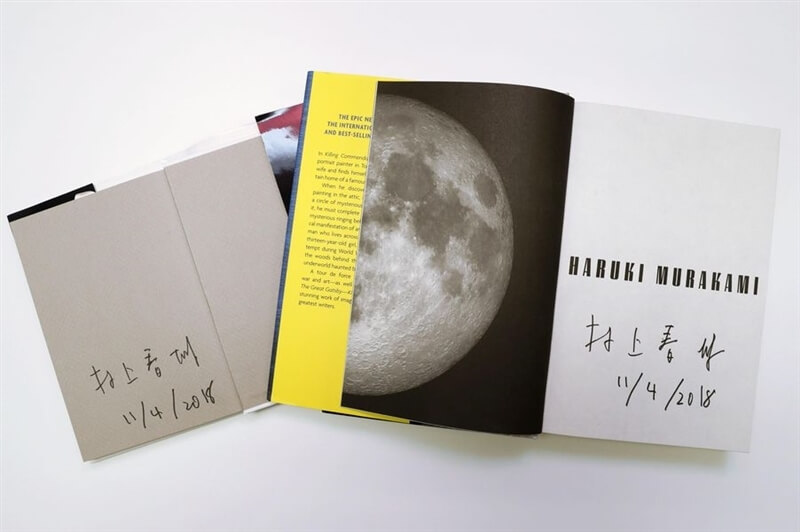 村上春樹
11/4/2018
THE EPIC NE
THE INTERNATIC
AND BEST-SELLIN
In Killing Commenda
portrait painter in To
wife and finds himse
tain home of a famou
When he discove
painting in the attic,
a circle of mysteriou
it, he must complete
mysterious ringing be
cal manifestation of an
man who lives across
thirteen-year-old girl,
tempt during World
the woods behind th
underworld haunted b
A tour de force
war and art—as well
The Great Gatsby—Ki
stunning work of imag
greatest writers.
HARUKI MURAKAMI
村上春樹
11/4/2018